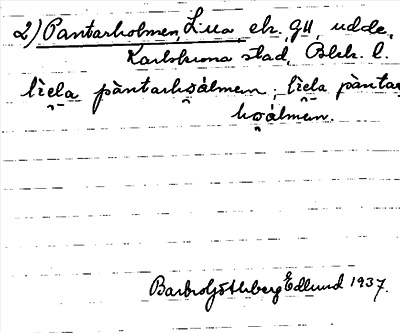 2) Pantarholmen, Lilla ek. GU, udde,
Karlskrona stad, Blek. l.
lìcla pàntarhoálmen; lìcla pàntar
hoálmen.
Barbro Götheberg Edlund 1937.